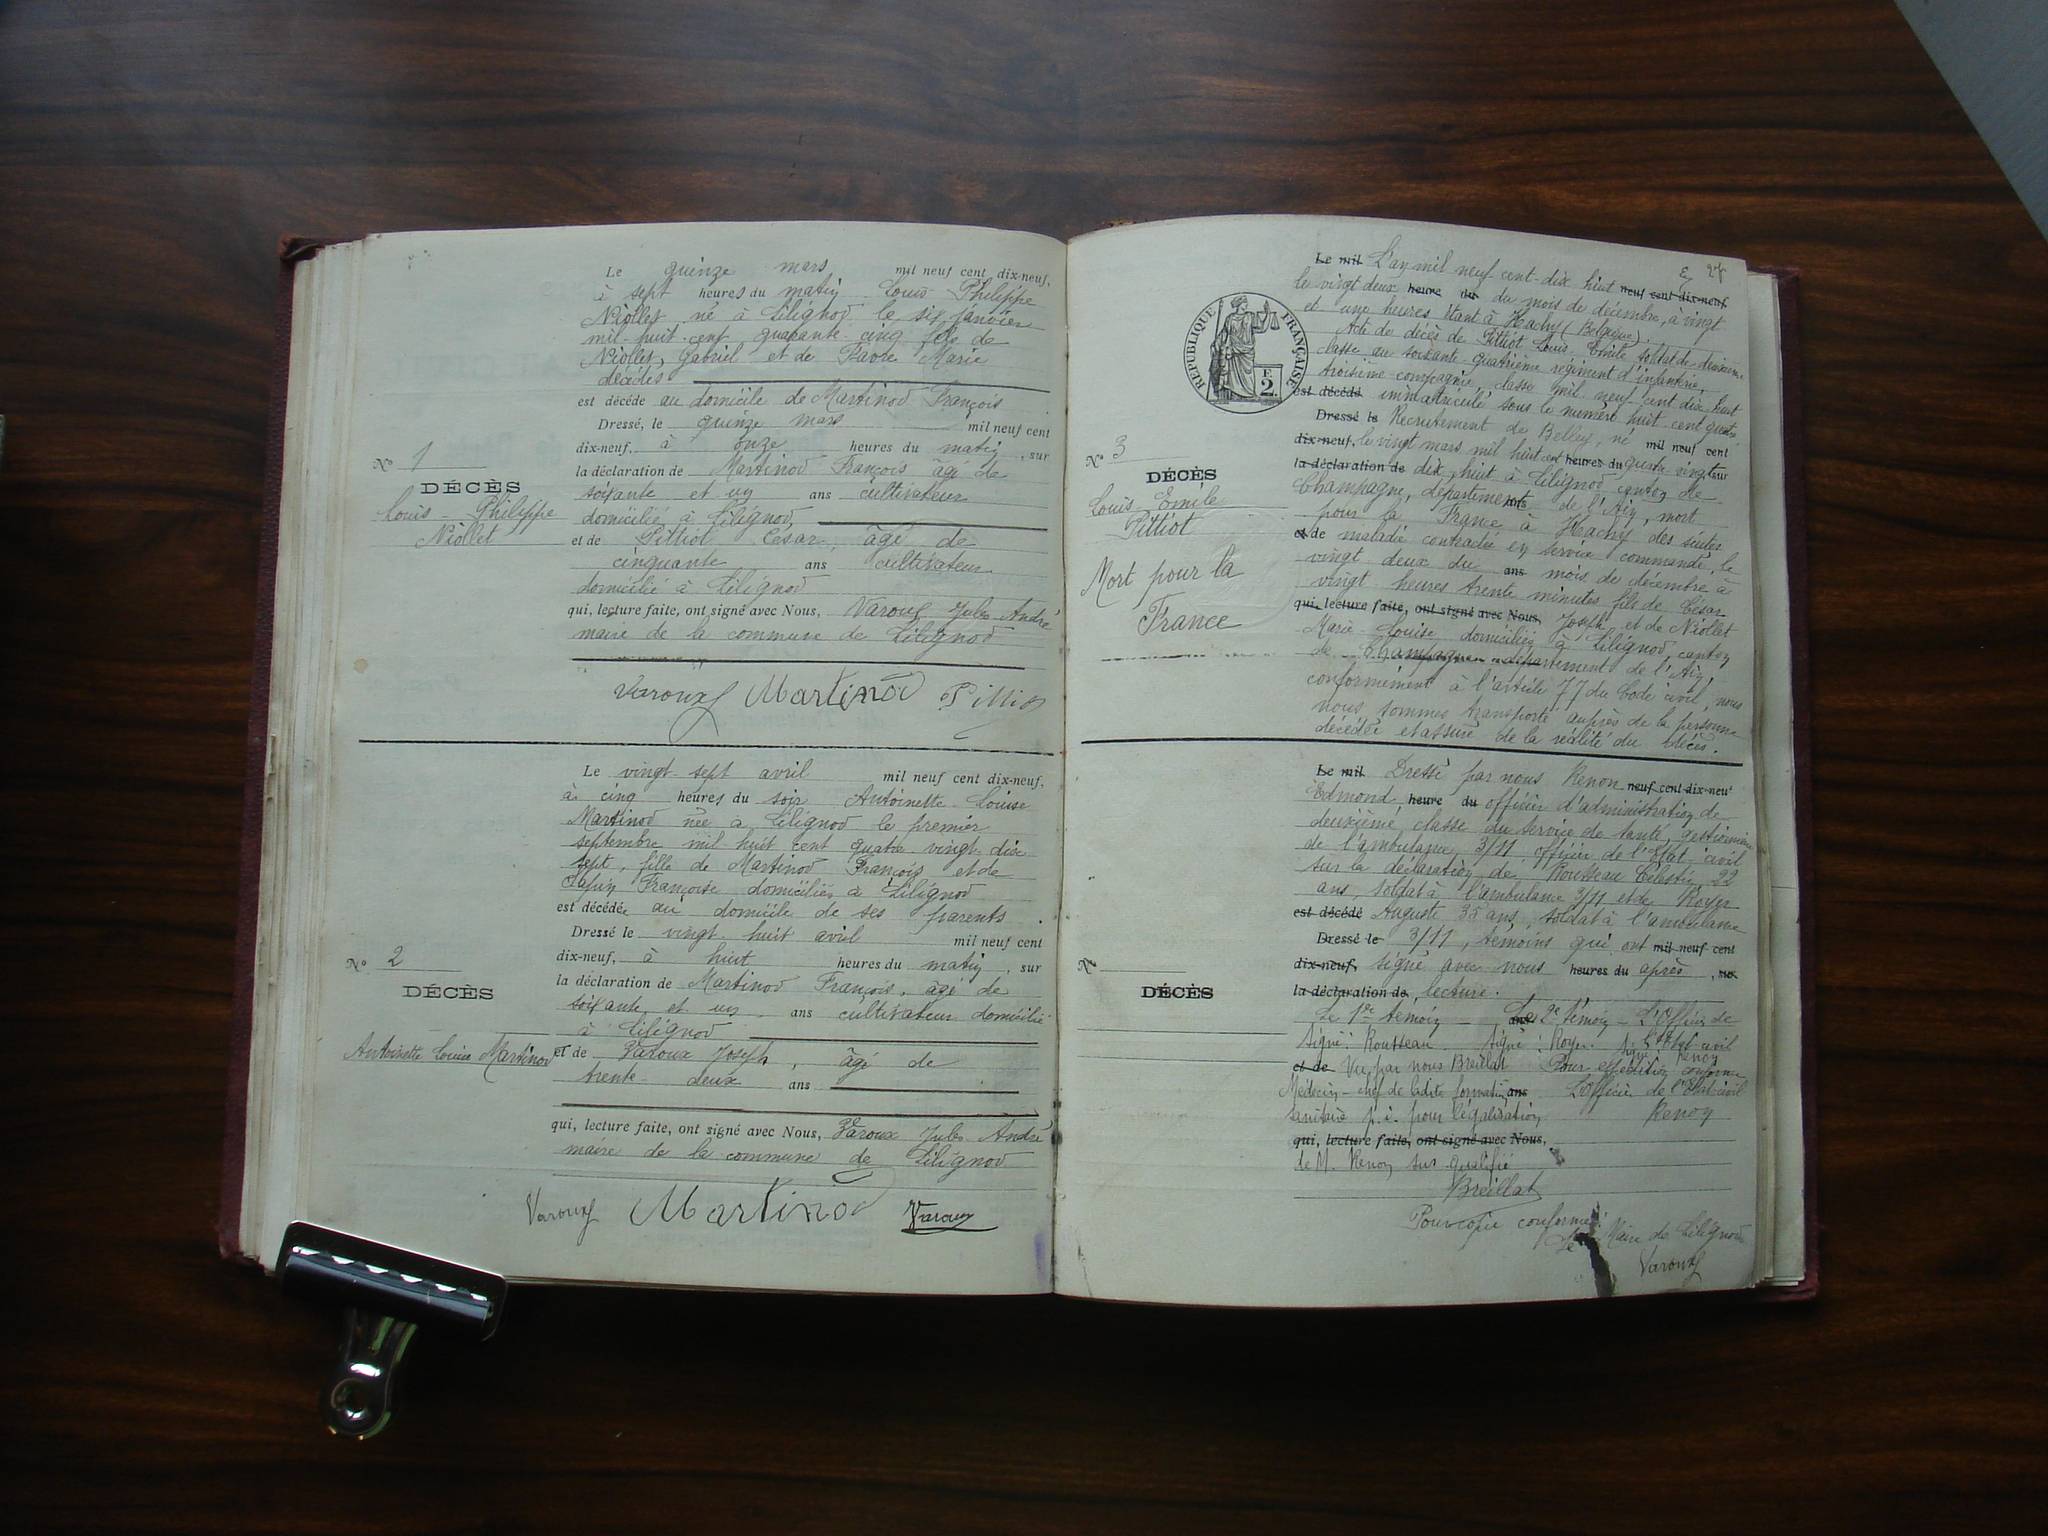 Le quinze mars mil neuf cent dix-neuf,
à sept heures du matin Louis Philippe
Niollet né à Lilignod le six janvier
mil huit cent quarante cinq fils de
Niollet, Gabriel et de Favre Marie
décédés
est décédé au domicile de Martinod François
Dressé, le quinze mars mil neuf cent
dix-neuf, à onze heures du matin, sur
la déclaration de Martinod François âgé de
soixante et un ans cultivateur
domicilié à Lilignod
et de Pittiot César, âgé de
cinquante ans cultivateur
domicilié à Lilignod
qui, lecture faite, ont signé avec Nous, Varoux Jules André
maire de la commune de Lilignod
Varoux Martinod Pittiot
No 1
DÉCÈS
Louis-Philippe
Niollet
Le vingt-sept avril mil neuf cent dix-neuf,
à cinq heures du soir Antoinette Louise
Martinod née à Lilignod le premier
septembre mil huit cent quatre vingt dix
sept, fille de Martinod François et de
Françoise domiciliés à Lilignod
est décédée au domicile de ses parents.
Dressé le vingt huit avril mil neuf cent
dix-neuf, à huit heures du matin, sur
la déclaration de Martinod François, âgé de
soixante et un ans cultivateur domicilié
à Lilignod
et de Varoux Joseph, âgé de
trente-deux ans
qui, lecture faite, ont signé avec Nous, Varoux Jules André
maire de la commune de Lilignod
Varoux Martinod Varoux
No 2
DÉCÈS
Antoinette Louise Martinod
27
RÉPUBLIQUE FRANÇAISE
2
Le mil L'an mil neuf cent-dix huit neuf cent dix-neuf
le vingt deux heure du du mois de décembre, à vingt
et une heures étant à Hachy (Belgique).
Acte de décès de Pittiot Louis, Emile soldat de deuxième
classe au soixante-quatrième régiment d'infanterie
troisième compagnie, classe mil neuf cent dix huit
est décédé immatriculé sous le numéro huit cent quatre
Dressé le Recrutement de Belley, né mil neuf cent
dix-neuf, le vingt mars mil huit cent heures du quatre-vingt sur
la déclaration de dix huit à Lilignod canton de
Champagne, département de l'Ain, mort
pour la France à Hachy des suites
et de maladie contractée en service commandé, le
vingt deux du ans mois de décembre à
vingt heures trente minutes fils de César
qui, lecture faite, ont signé avec Nous, Joseph et de Niollet
Marie-Louise domiciliés à Lilignod, canton
de Champagne département de l'Ain,
conformément à l'article 77 du Code civil, nous
nous sommes transporté auprès de la personne
décédée et assuré de la réalité du décès.
No 3
DÉCÈS
Louis Emile
Pittiot
Mort pour la
France
Le mil Dressé par nous Renon neuf cent dix-neuf
Edmond, heure du officier d'administration de
deuxième classe du service de santé, gestionnaire
de l'ambulance 3/11 officier de l'Etat civil
sur la déclaration de Rousseau Célestin 22
ans, soldat à l'ambulance 3/11 et de Royer
est décédé Auguste 35 ans, soldat à l'ambulance
Dressé le 3/11, témoins qui ont mil neuf cent
dix-neuf, signé avec nous heures du après, sur
la déclaration de, lecture.
Le 1er témoin – ans Le 2e témoin – L'Officier de
Signé: Rousseau. Signé: Royer. l'Etat-civil
Signé Renon
et de Vu par nous Breillat Pour expédition conforme
Médecin-chef de ladite formation ans L'Officier de l'Etat-civil
sanitaire p.i. pour légalisation Renon
qui, lecture faite, ont signé avec Nous,
de M. Renon sus-qualifié
Breillat
Pour copie conforme:
Le Maire de Lilignod
Varoux
No
DÉCÈS